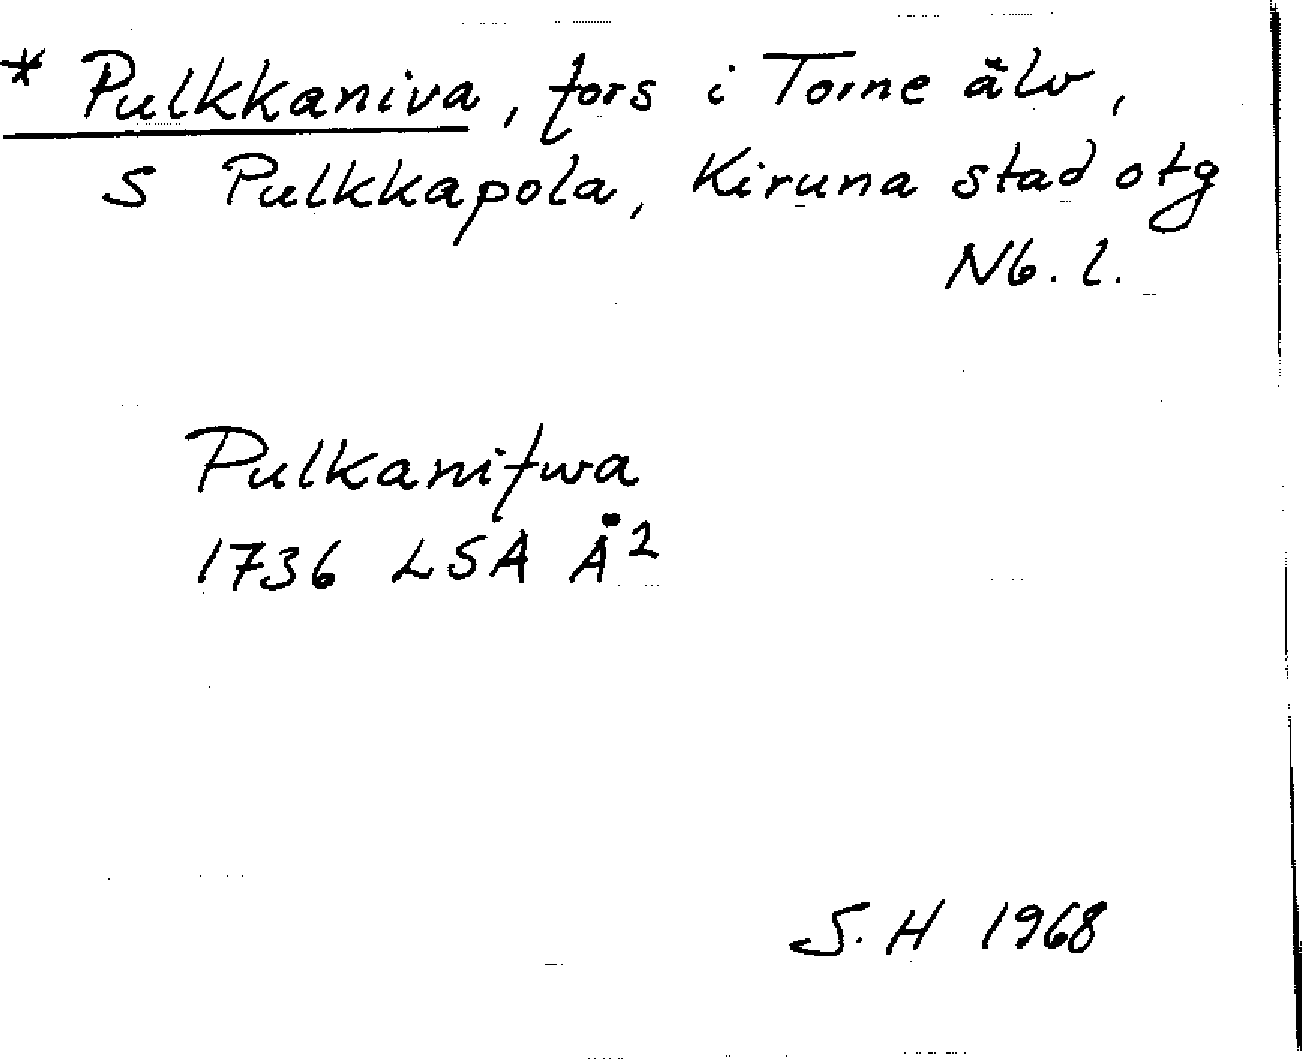 * Pulkkaniva, fors i Torne älv,
S Pulkkapola, Kiruna stad otg
Nb. l.
Pulkanifwa
1736 LSA Å2
S.H 1968